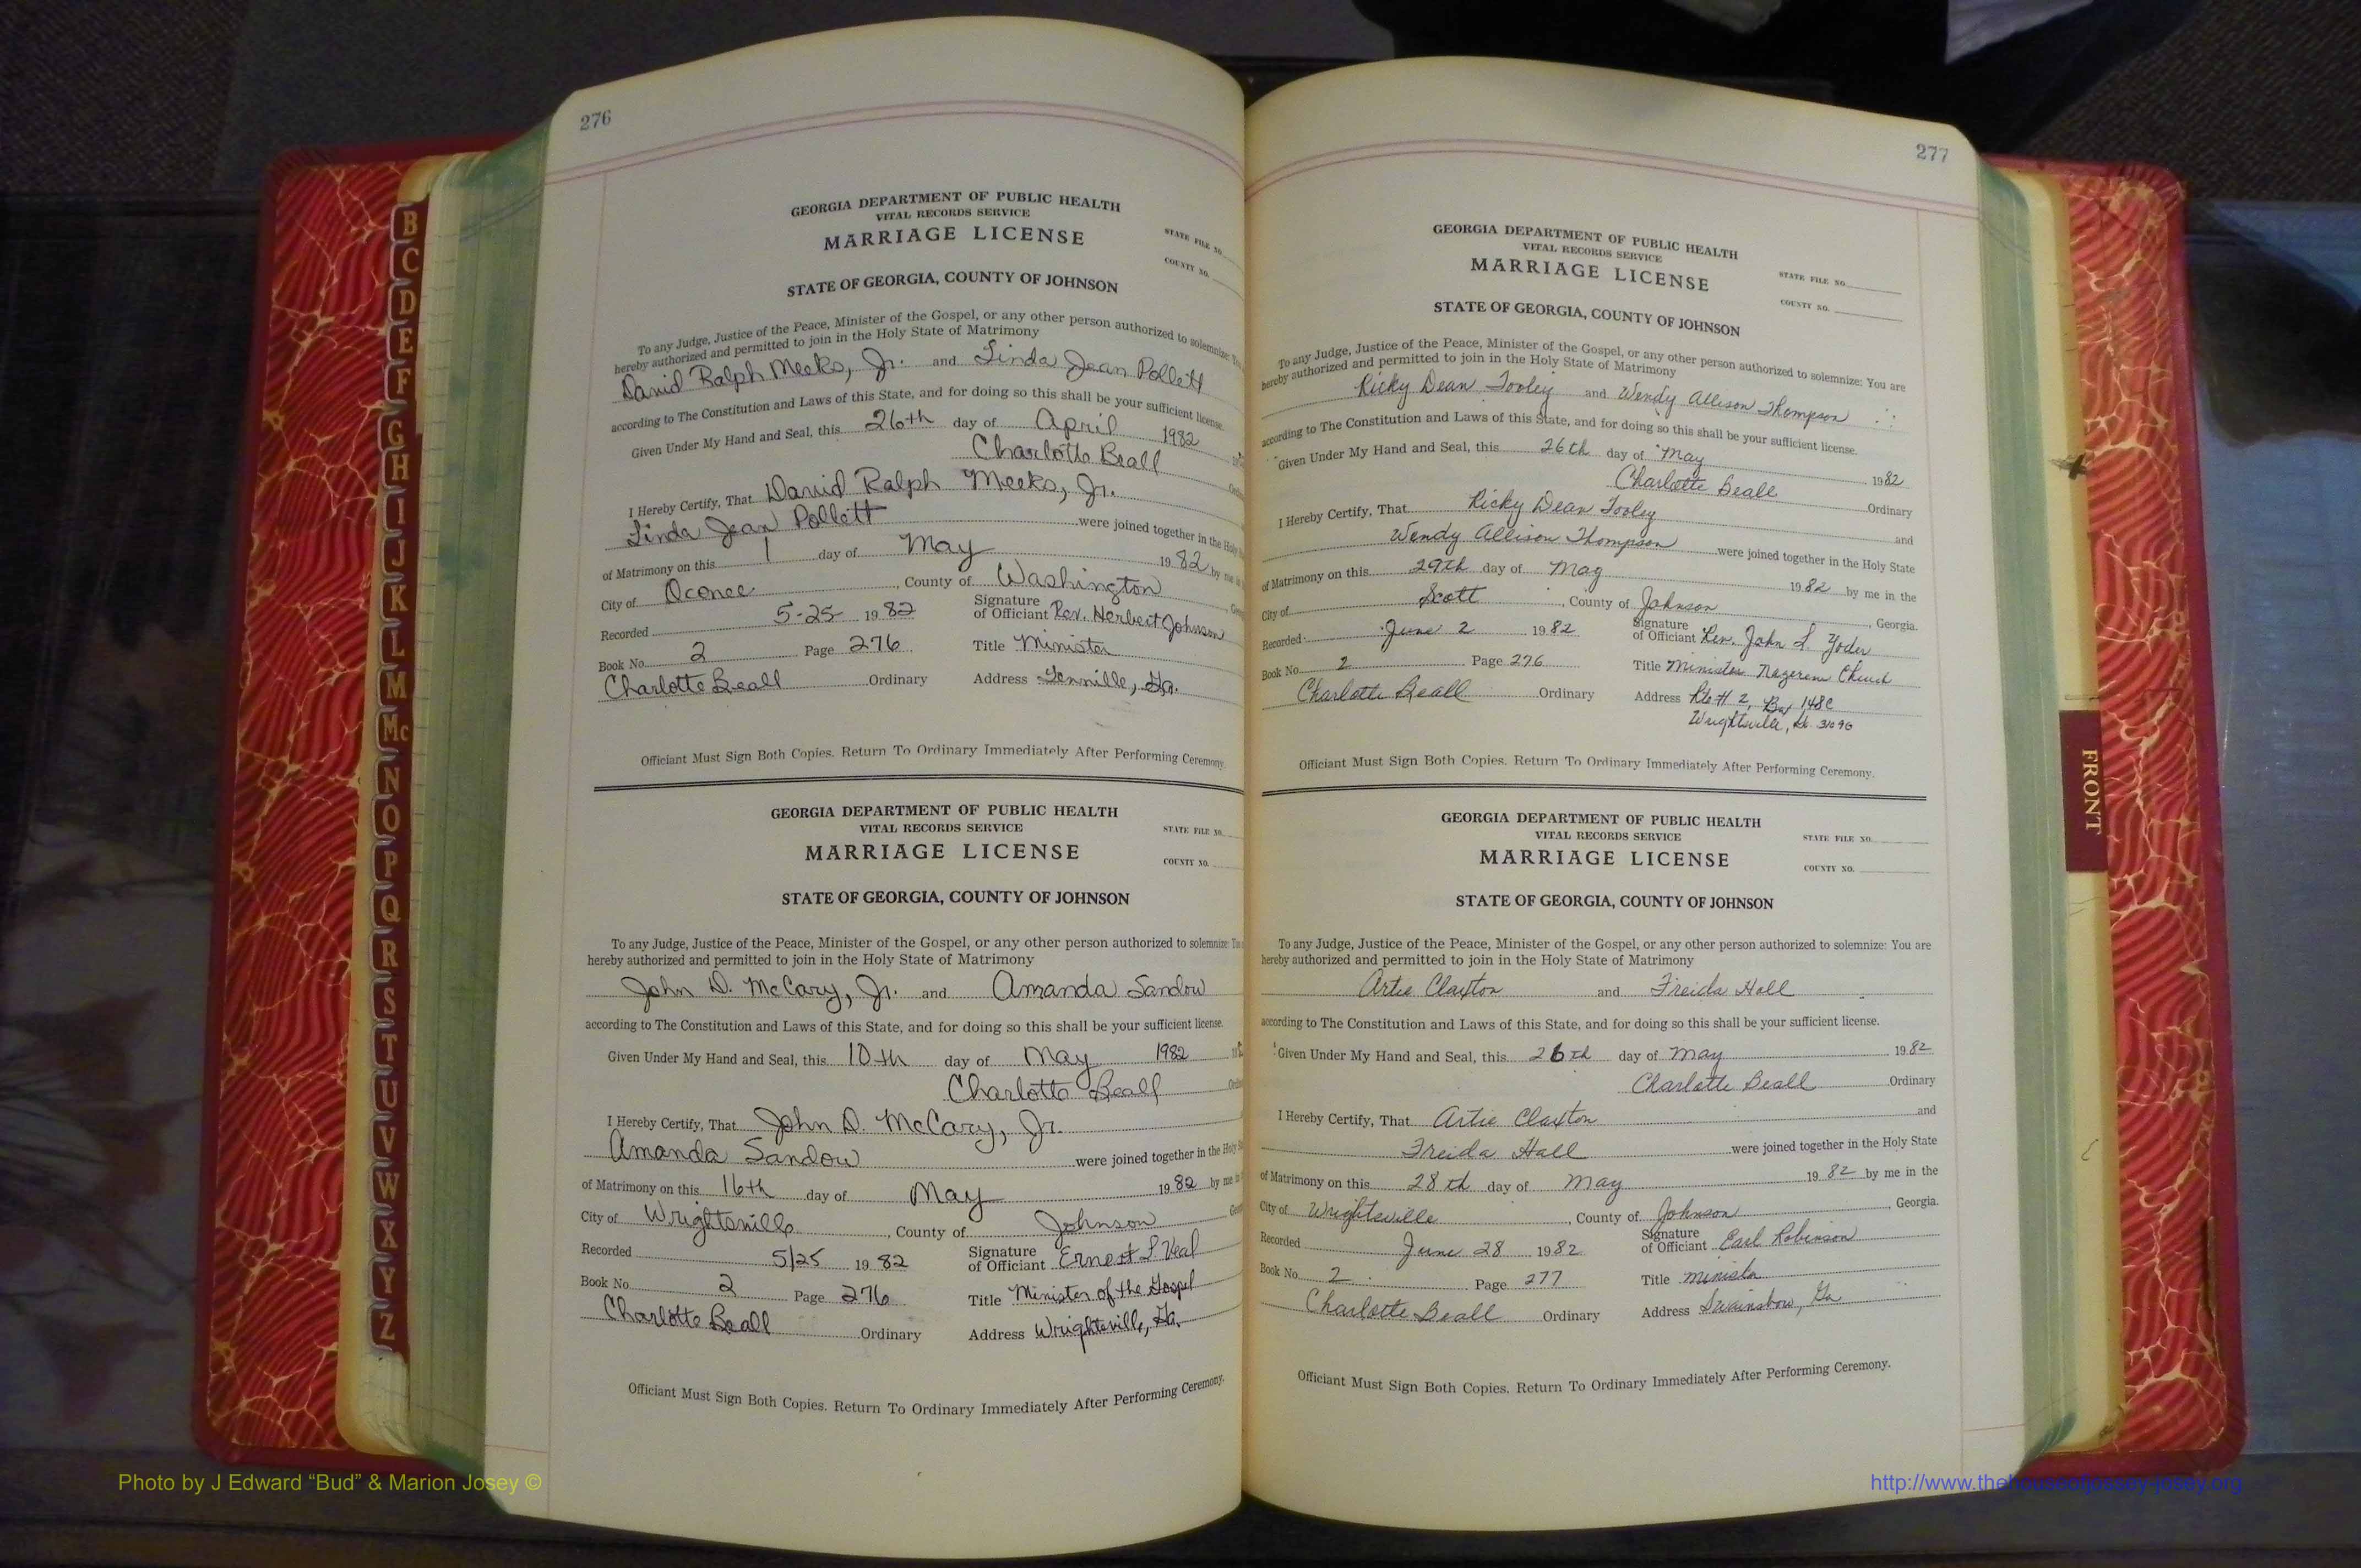 276
GEORGIA DEPARTMENT OF PUBLIC HEALTH
VITAL RECORDS SERVICE
MARRIAGE LICENSE
STATE FILE NO.
COUNTY NO.
STATE OF GEORGIA, COUNTY OF JOHNSON
To any Judge, Justice of the Peace, Minister of the Gospel, or any other person authorized to solemnize: You
hereby authorized and permitted to join in the Holy State of Matrimony
David Ralph Meeks, Jr. and Linda Jean Pollett
according to The Constitution and Laws of this State, and for doing so this shall be your sufficient license.
Given Under My Hand and Seal, this 26th day of April 1982
Charlotte Beall
I Hereby Certify, That David Ralph Meeks, Jr.
Linda Jean Pollett were joined together in the Holy
of Matrimony on this 1 day of May 1982 by me in
City of Oconee, County of Washington
Recorded 5-25 1982 Signature of Officiant Rev. Herbert Johnson
Book No. 2 Page 276 Title Minister
Charlotte Beall Ordinary Address Tennille, Ga.
Officiant Must Sign Both Copies. Return To Ordinary Immediately After Performing Ceremony.
GEORGIA DEPARTMENT OF PUBLIC HEALTH
VITAL RECORDS SERVICE
MARRIAGE LICENSE
STATE FILE NO.
COUNTY NO.
STATE OF GEORGIA, COUNTY OF JOHNSON
To any Judge, Justice of the Peace, Minister of the Gospel, or any other person authorized to solemnize: You
hereby authorized and permitted to join in the Holy State of Matrimony
John D. McCary, Jr. and Amanda Sandow
according to The Constitution and Laws of this State, and for doing so this shall be your sufficient license.
Given Under My Hand and Seal, this 10th day of May 1982
Charlotte Beall
I Hereby Certify, That John D. McCary, Jr.
Amanda Sandow were joined together in the Holy
of Matrimony on this 16th day of May 1982 by me in
City of Wrightsville, County of Johnson
Recorded 5/25 1982 Signature of Officiant Ernest L Veal
Book No. 2 Page 276 Title Minister of the Gospel
Charlotte Beall Ordinary Address Wrightsville, Ga.
Officiant Must Sign Both Copies. Return To Ordinary Immediately After Performing Ceremony.
277
GEORGIA DEPARTMENT OF PUBLIC HEALTH
VITAL RECORDS SERVICE
MARRIAGE LICENSE
STATE FILE NO.
COUNTY NO.
STATE OF GEORGIA, COUNTY OF JOHNSON
To any Judge, Justice of the Peace, Minister of the Gospel, or any other person authorized to solemnize: You are
hereby authorized and permitted to join in the Holy State of Matrimony
Ricky Dean Tooley and Wendy Allison Thompson
according to The Constitution and Laws of this State, and for doing so this shall be your sufficient license.
Given Under My Hand and Seal, this 26th day of May 1982
Charlotte Beall Ordinary
I Hereby Certify, That Ricky Dean Tooley and
Wendy Allison Thompson were joined together in the Holy State
of Matrimony on this 29th day of May 1982 by me in the
City of Scott, County of Johnson, Georgia.
Recorded June 2 1982 Signature of Officiant Rev. John L. Yoder
Book No. 2 Page 276 Title Minister Nazerene Church
Charlotte Beall Ordinary Address Rte # 2, Box 148C
Wrightsville, Ga 31096
Officiant Must Sign Both Copies. Return To Ordinary Immediately After Performing Ceremony.
GEORGIA DEPARTMENT OF PUBLIC HEALTH
VITAL RECORDS SERVICE
MARRIAGE LICENSE
STATE FILE NO.
COUNTY NO.
STATE OF GEORGIA, COUNTY OF JOHNSON
To any Judge, Justice of the Peace, Minister of the Gospel, or any other person authorized to solemnize: You are
hereby authorized and permitted to join in the Holy State of Matrimony
Artie Claxton and Freida Hall
according to The Constitution and Laws of this State, and for doing so this shall be your sufficient license.
Given Under My Hand and Seal, this 26th day of May 1982
Charlotte Beall Ordinary
I Hereby Certify, That Artie Claxton and
Freida Hall were joined together in the Holy State
of Matrimony on this 28th day of May 1982 by me in the
City of Wrightsville, County of Johnson, Georgia.
Recorded June 28 1982 Signature of Officiant Earl Robinson
Book No. 2 Page 277 Title Minister
Charlotte Beall Ordinary Address Swainsboro, Ga
Officiant Must Sign Both Copies. Return To Ordinary Immediately After Performing Ceremony.
B
C
D
E
F
G
H
I
J
K
L
M
Mc
N
O
P
Q
R
S
T
U
V
W
X
Y
Z
FRONT
Photo by J Edward “Bud” & Marion Josey ©
http://www.thehouseofjossey-josey.org